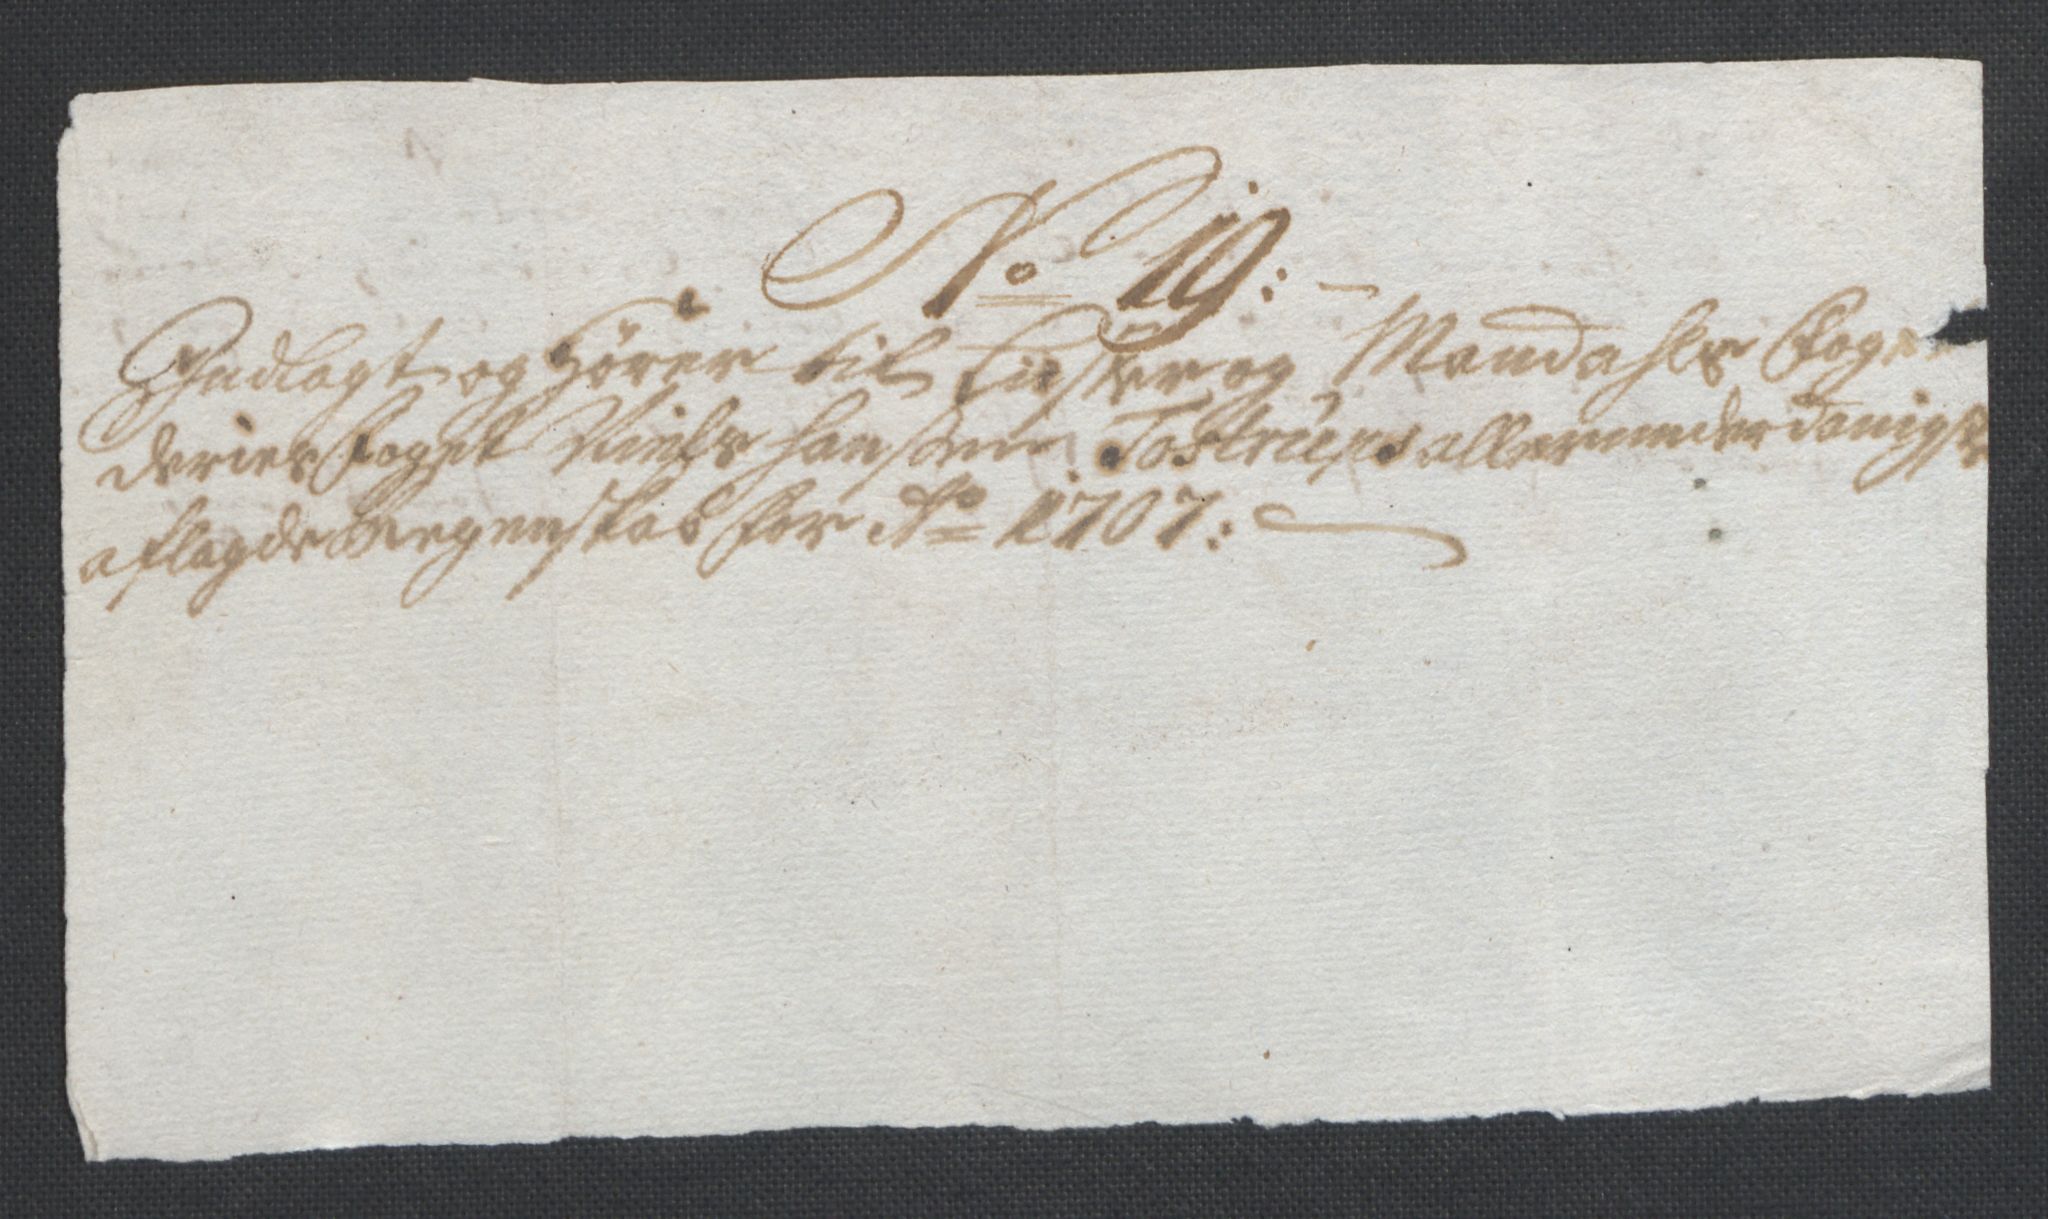 No 19:
Indlagt og hörer til Lister og Mandahls Foge
deries Foget Niels Hansen Tostrups allerunderdanigst
aflagde Regenskab for Ao 1707: